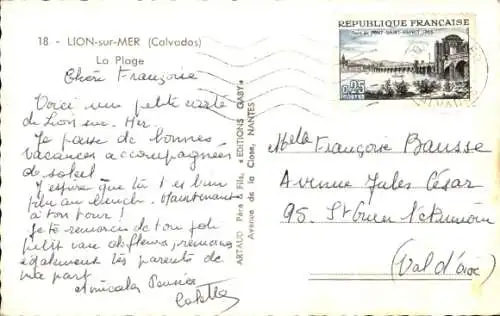 18 - LION-sur-MER (Calvados)
La Plage
Chère Françoise
Voici une petite carte
de Lion sur Mer.
Je passe de bonnes
vacances accompagnées
de soleil
J'espère que tu t'es bien
plu au
Maintenant
à ton tour !
Je te remercie de ton joli
petit vase de fleurs, remercie
également tes parents de
ma part
Amicales Pensées
ARTAUD Père & Fils, "EDITIONS GABY"
Avenue de la Close, NANTES
REPUBLIQUE FRANÇAISE
PONT-SAINT-ESPRIT
0,25
POSTES
Melle Françoise Bausse
Avenue Jules César
95. St Ouen l'Aumône
(Val d'Oise)